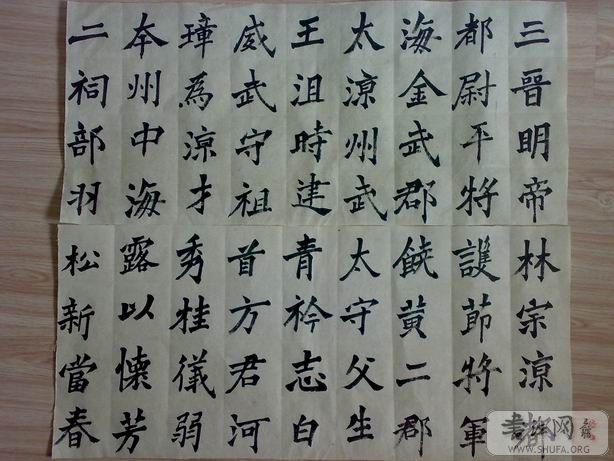 三晉明帝
都尉平將
海金武郡
太涼州武
王沮時建
威武守祖
璋爲涼才
本州中海
二祠部羽
林宗涼
護節將軍
饒黃二郡
太守父生
青衿志白
首方君河
秀桂儀弱
露以懷芳
松新當春
书法网
WWW.SHUFA.ORG